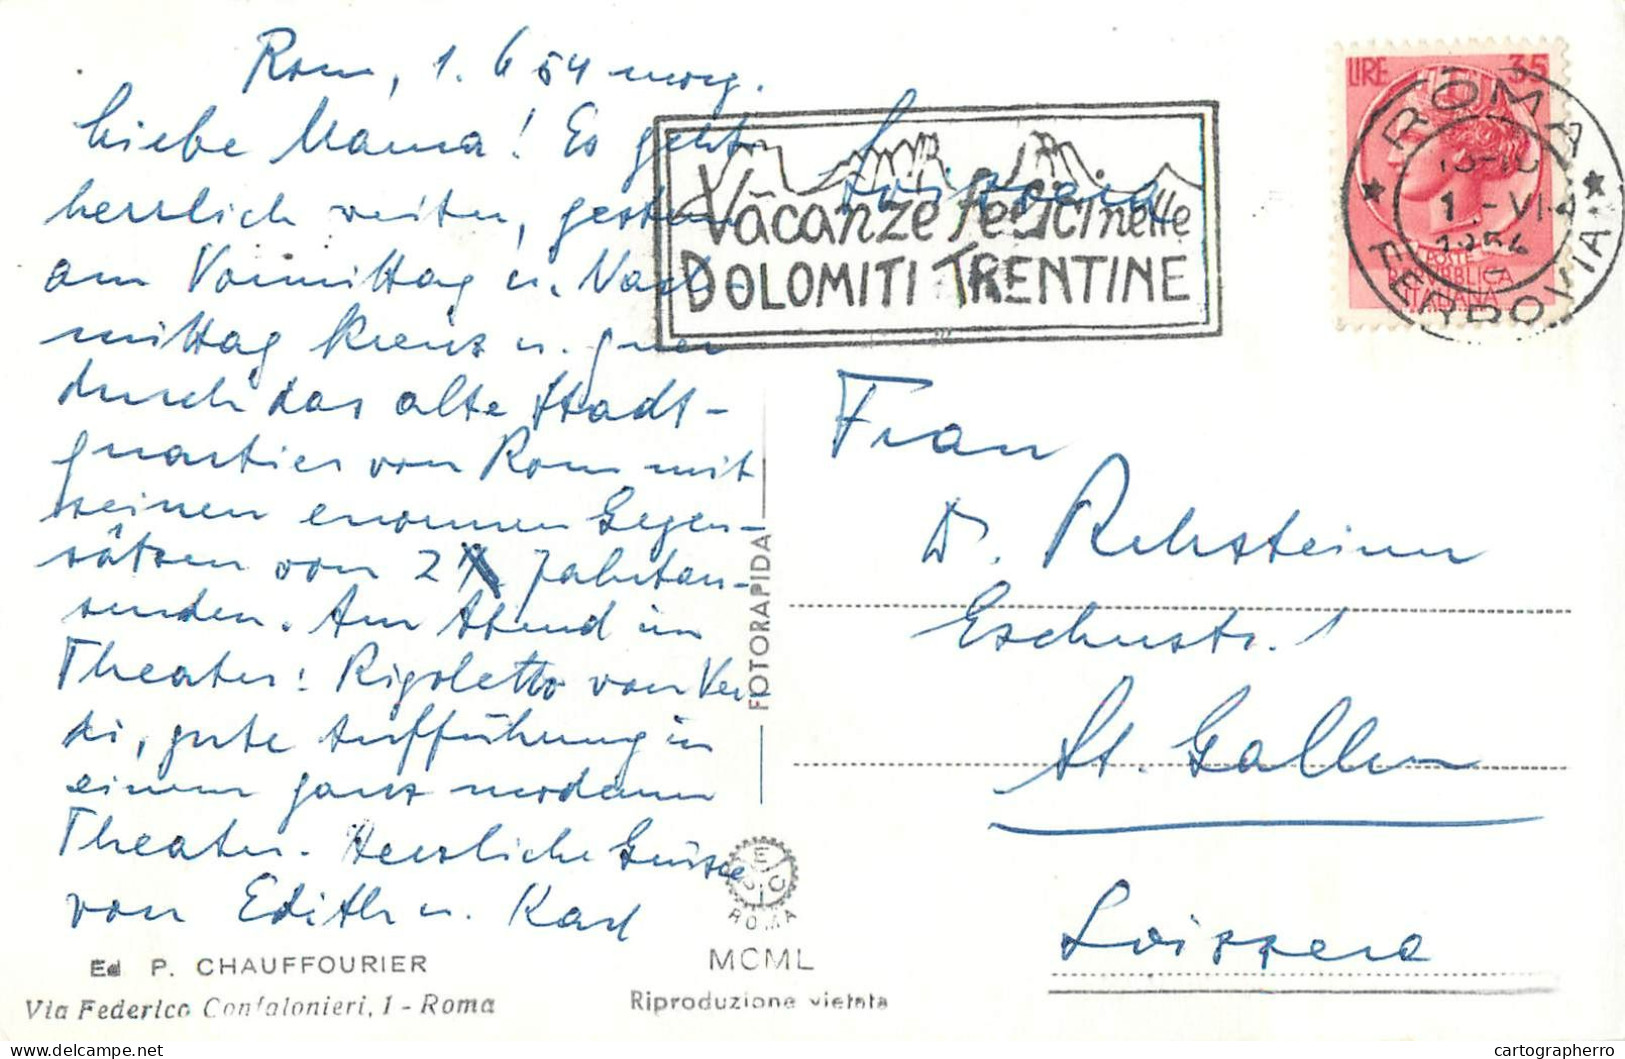 Rom, 1. 6 54 morg.
Liebe Mama! Es geht
herrlich weiter, gestern
am Vormittag u. Nach-
mittag kreuz u. quer
durch das alte Stadt-
quartier von Rom mit
seinen enormen Gegen-
sätzen von 2 Jahrtau-
senden. Am Abend im
Theater: Rigoletto von Ver-
di, gute Aufführung in
einem ganz modernen
Theater. Herzliche Grüsse
von Edith u. Karl
Ed P. CHAUFFOURIER
Via Federico Confalonieri, 1 - Roma
FOTORAPIDA
ROMA
MCML
Riproduzione vietata
Vacanze felici nelle
DOLOMITI TRENTINE
Svizzera
LIRE 35
POSTE
REPUBBLICA
ITALIANA
ROMA
1 - VI
1954
FERROVIA
Frau
Dr. Rehsteiner
Eschenstr. 1
St. Gallen
Svizzera
cartographerro